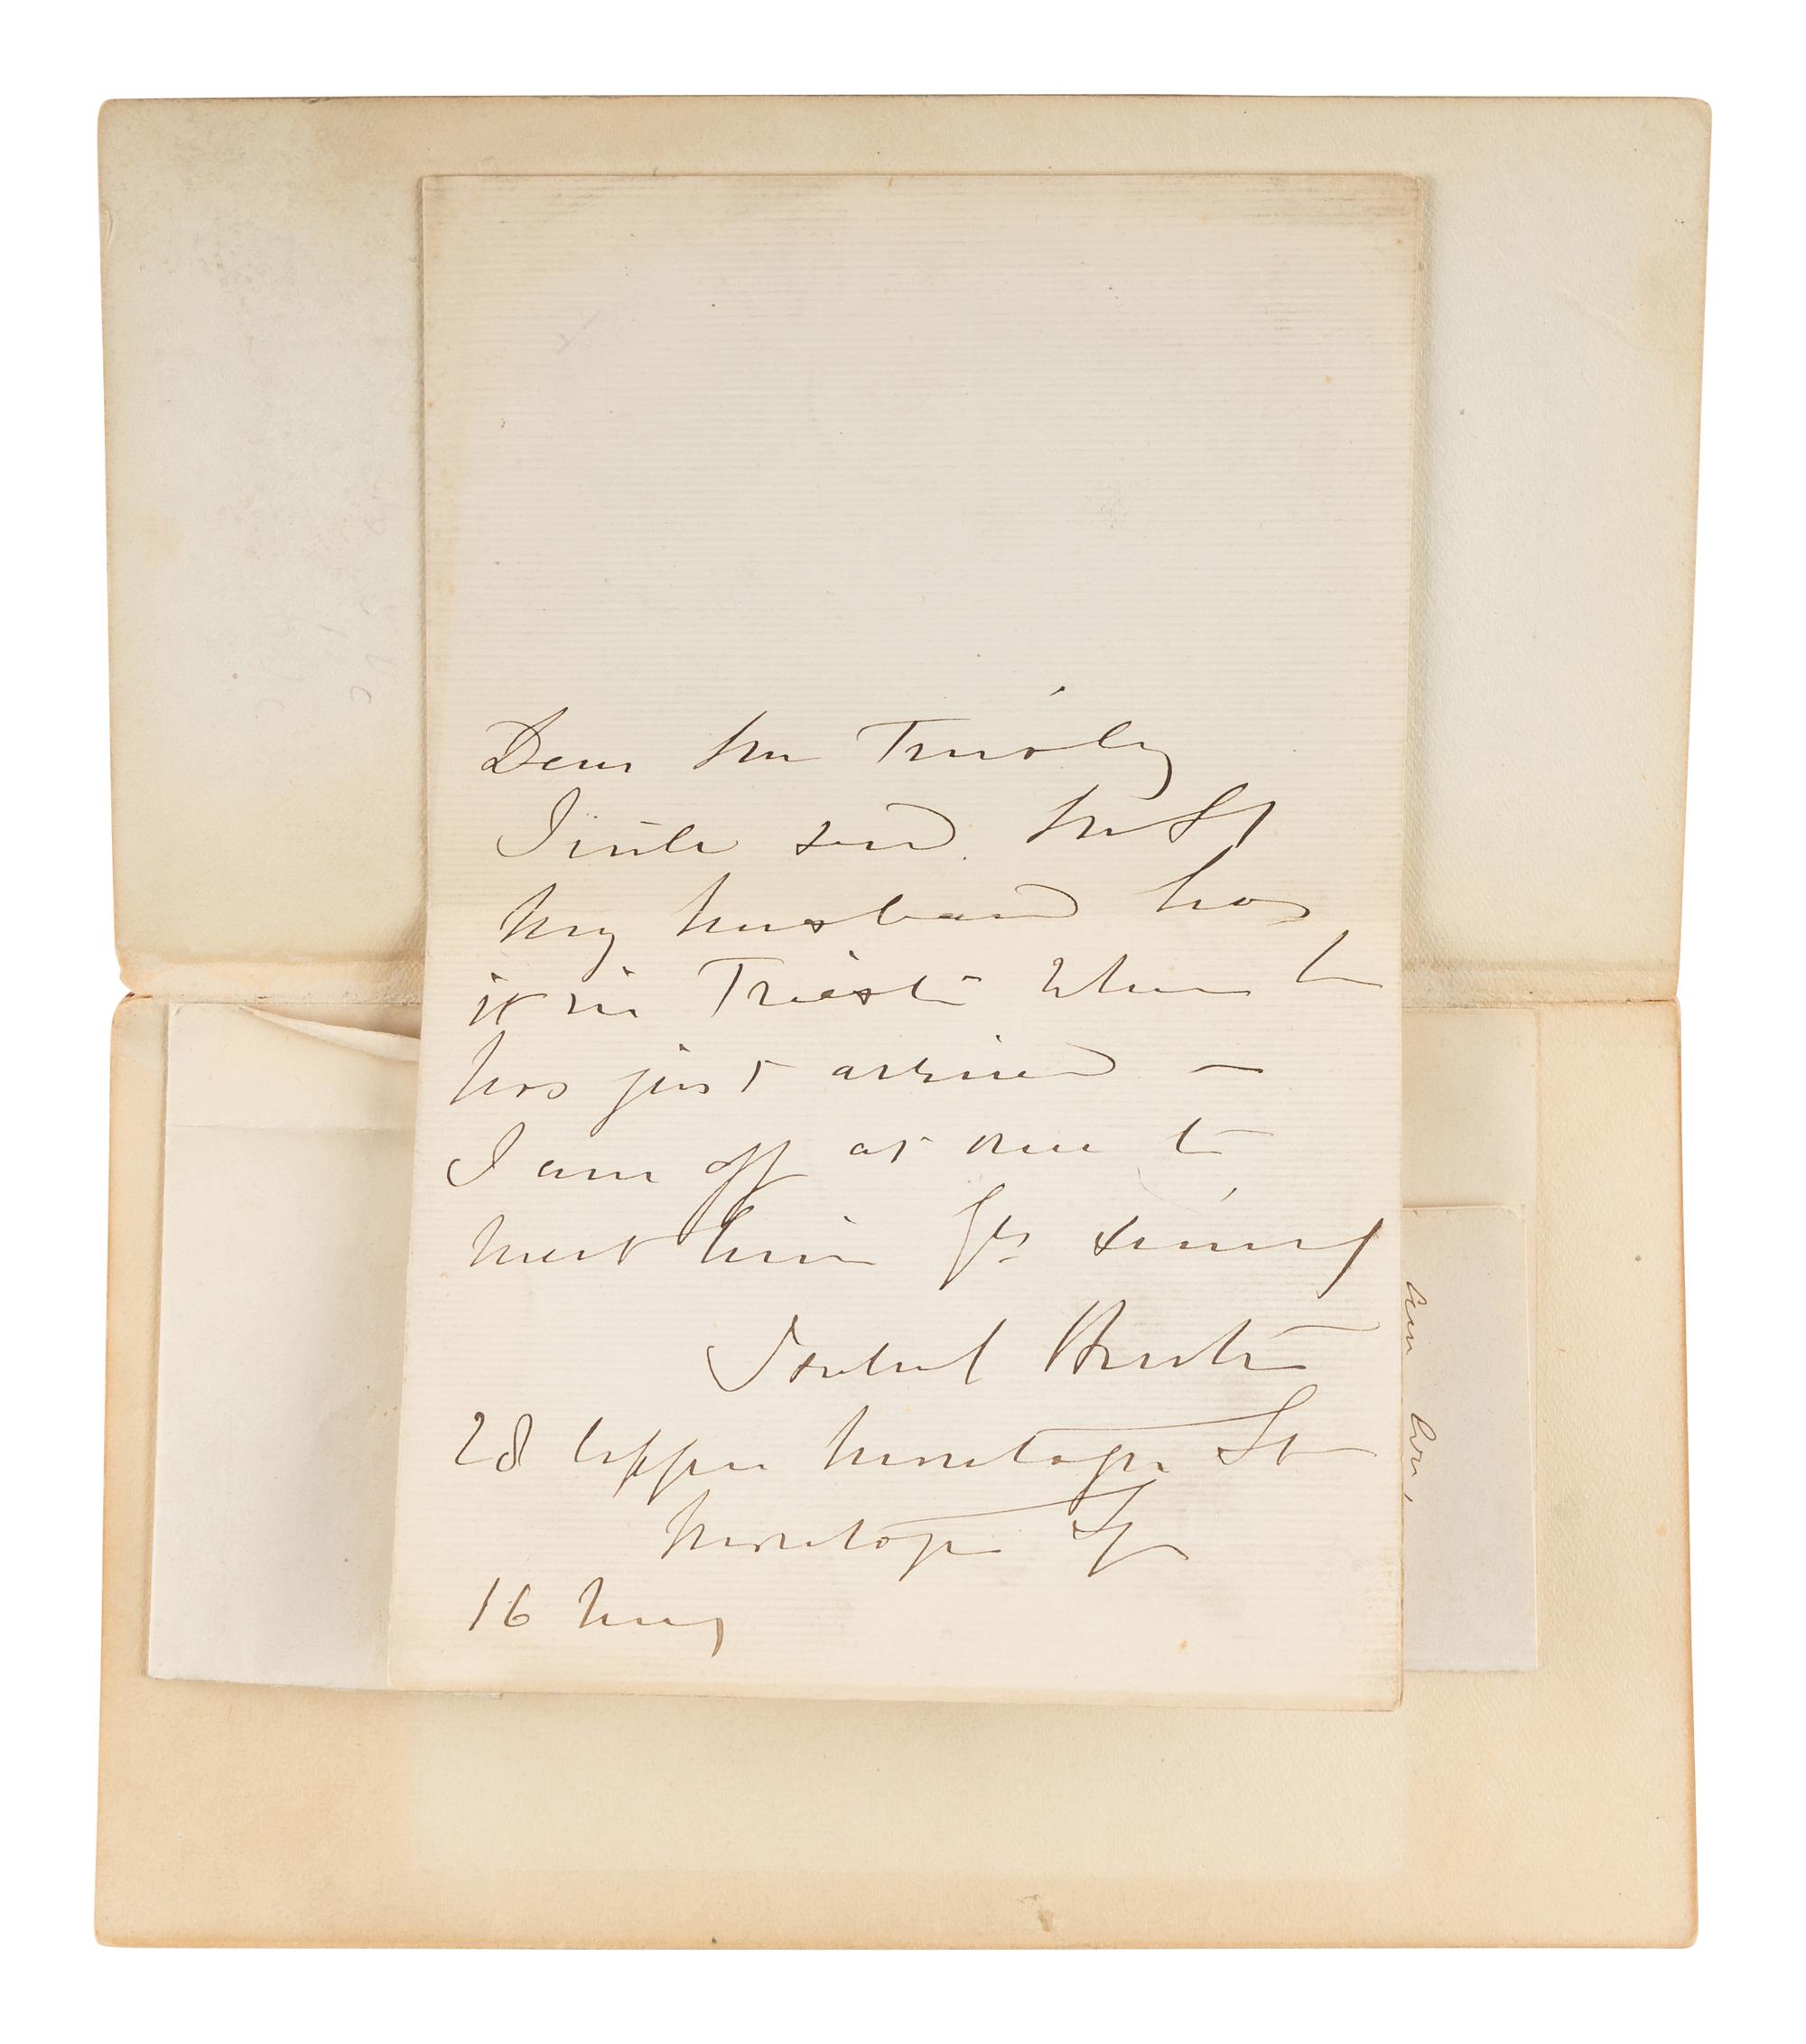 Dear Mr Tinsley
I will send Mr St
My husband has
it in Trieste where he
has just arrived —
I am off at once to
meet him Yrs sincy
Isabel Burton
28 Upper Montagu St
Montagu Sq
16 May